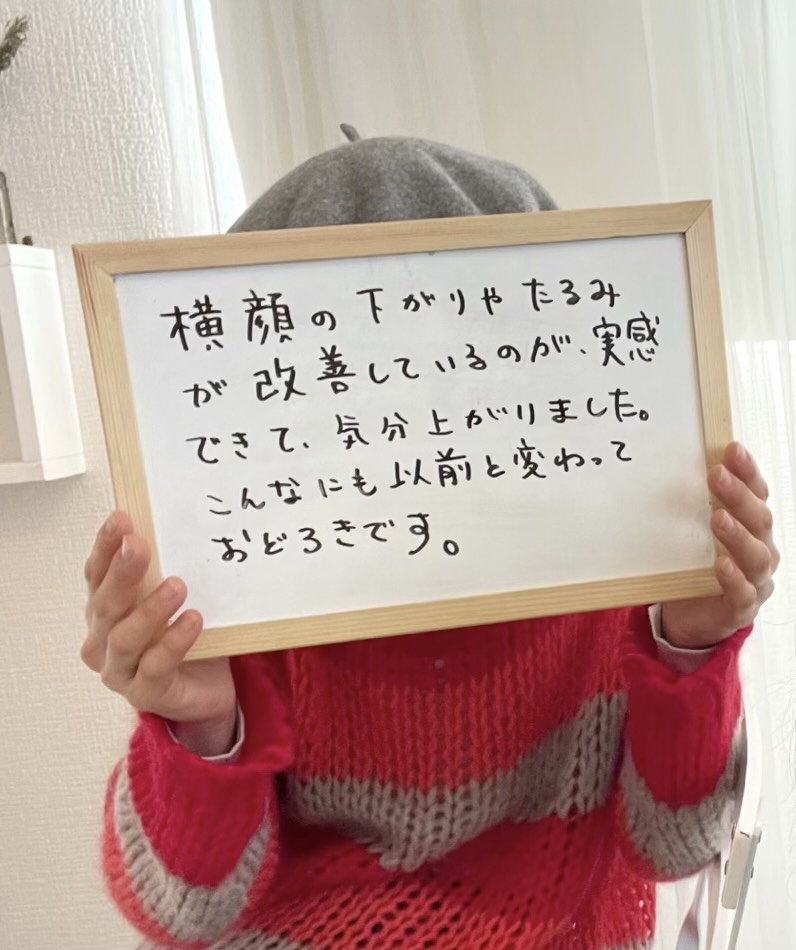 横顔の下がりやたるみ
が改善しているのが、実感
できて、気分上がりました。
こんなにも以前と変わって
おどろきです。